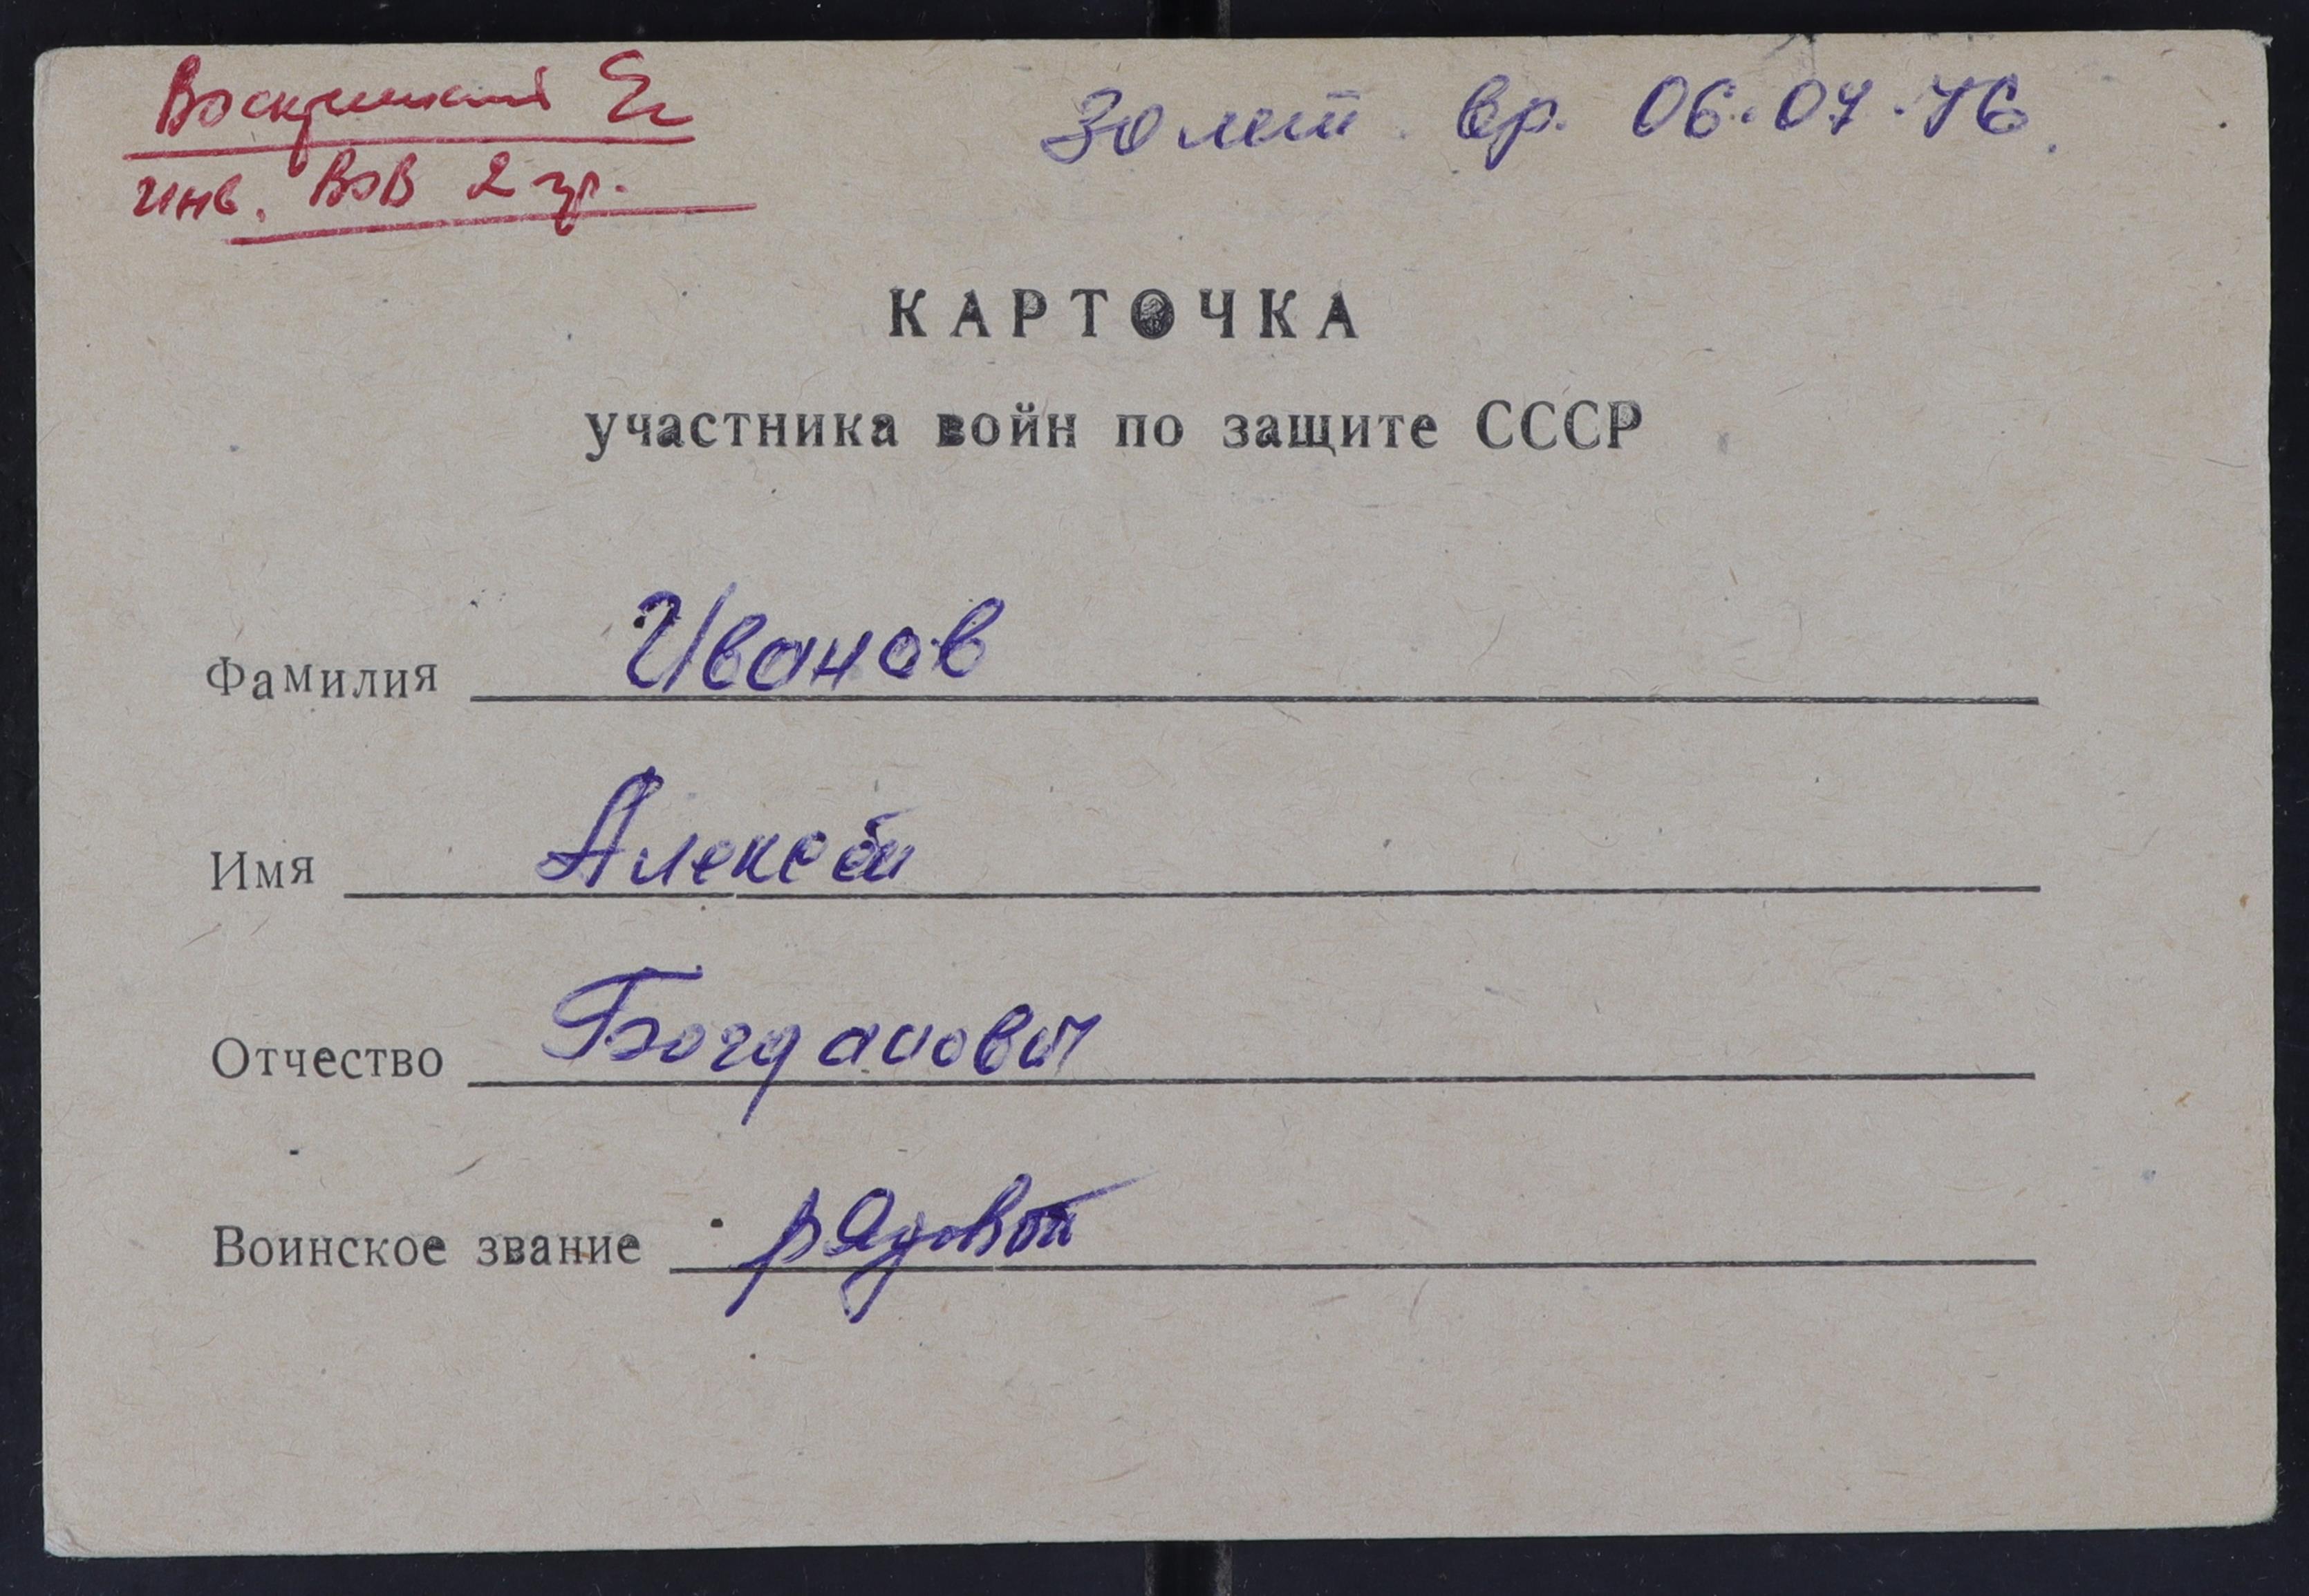 инв. ВОВ 2 гр.
30 лет вр. 06.04.76.
КАРТОЧКА
участника войн по защите СССР
Фамилия Иванов
Имя Алексей
Отчество Богданович
Воинское звание рядовой